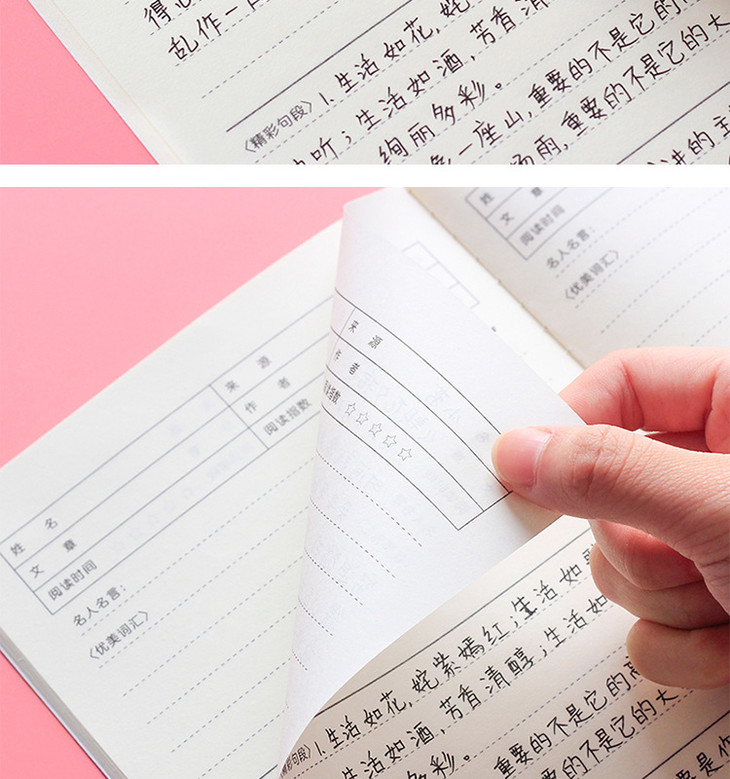 得心
乱作一
《精彩句段》1.生活如花,姹
听;生活如酒,芳香清
绚丽多彩。
一座山,重要的不是它的高
场雨,重要的不是它的大
讲的主
姓 名
文 章
阅读时间
名人名言:
《优美词汇》
来 源
作 者
指数 ☆☆☆☆☆
姓 名 来 源
文 章 作 者
阅读时间 阅读指数
名人名言:
《优美词汇》
精彩句段》1.生活如花,姹紫嫣红;生活如
生活如酒,芳香清醇;生活如
多彩。
重要的不是它的高
重要的不是它的大
是作